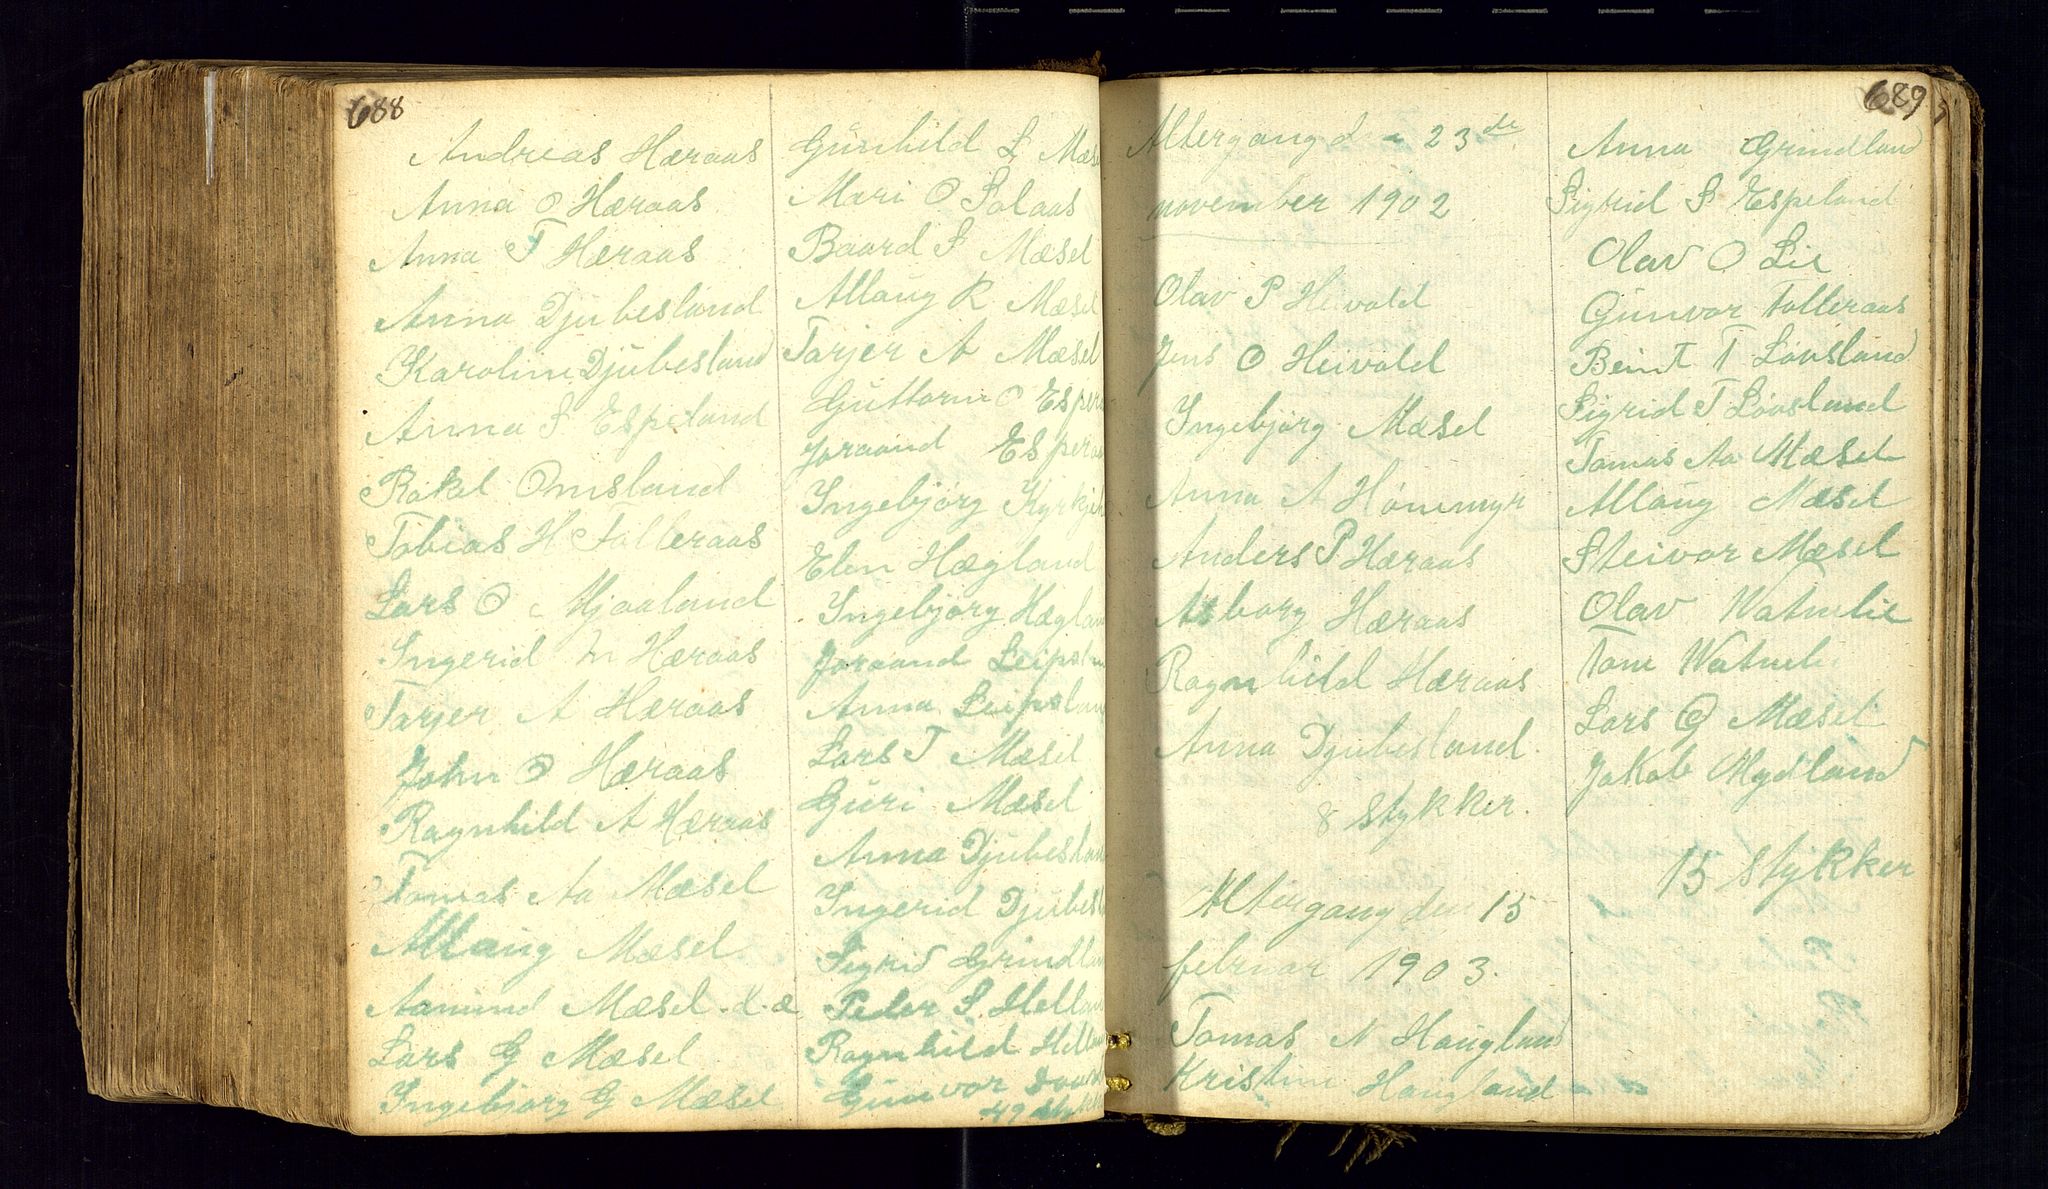 688
Andreas Hæraas
Anna O Hæraas
Anna T Hæraas
Anna Djubesland
Karoline Djubesland
Anna S Espeland
Rakel Omsland
Tobias H Falleraas
Lars O Mjaaland
Ingerid Hæraas
Tarjer A Hæraas
John O Hæraas
Ragnhild A Hæraas
Tomas Aa Mæsel
Allaug Mæsel
Aanund Mæsel d. æ
Lars G Mæsel
Ingebjørg G Mæsel
Gunhild L Mæs
Mari O Solaas
Baard S Mæsel
Allaug R Mæsel
Tarjer A Mæsel
Guttorm O Espe
Joraand Espe
Ingebjørg Kyrkje
Elen Hægland
Ingebjørg Hæglan
Joraand Leipslan
Anna Leipslan
Lars T Mæsel
Guri Mæsel
Anna Djubeslan
Ingerid Djubesl
Sigrid Grindlan
Peder S. Hellan
Ragnhild Hella
Gunvor
49 sty
689
Altergang d 23de
november 1902
Olav P Heivold
Jens O Heivold
Ingebjørg Mæsel
Anna A Hønemyr
Anders P Hæraas
Asborg Hæraas
Ragnhild Hæraas
Anna Djubesland
8 stykker.
Altergang den 15
februar 1903.
Tomas N Haugland
Kristin Haugland
Anna Grindland
Sigrid S Espeland
Olav O Lie
Gunvor Falleraas
Beint T Løvsland
Sigrid T Løvsland
Tomas Aa Mæsel
Allaug Mæsel
Steivor Mæsel
Olav Watnelie
Tone Watneli
Lars O Mæsel
Jakob Mydland
15 stykker